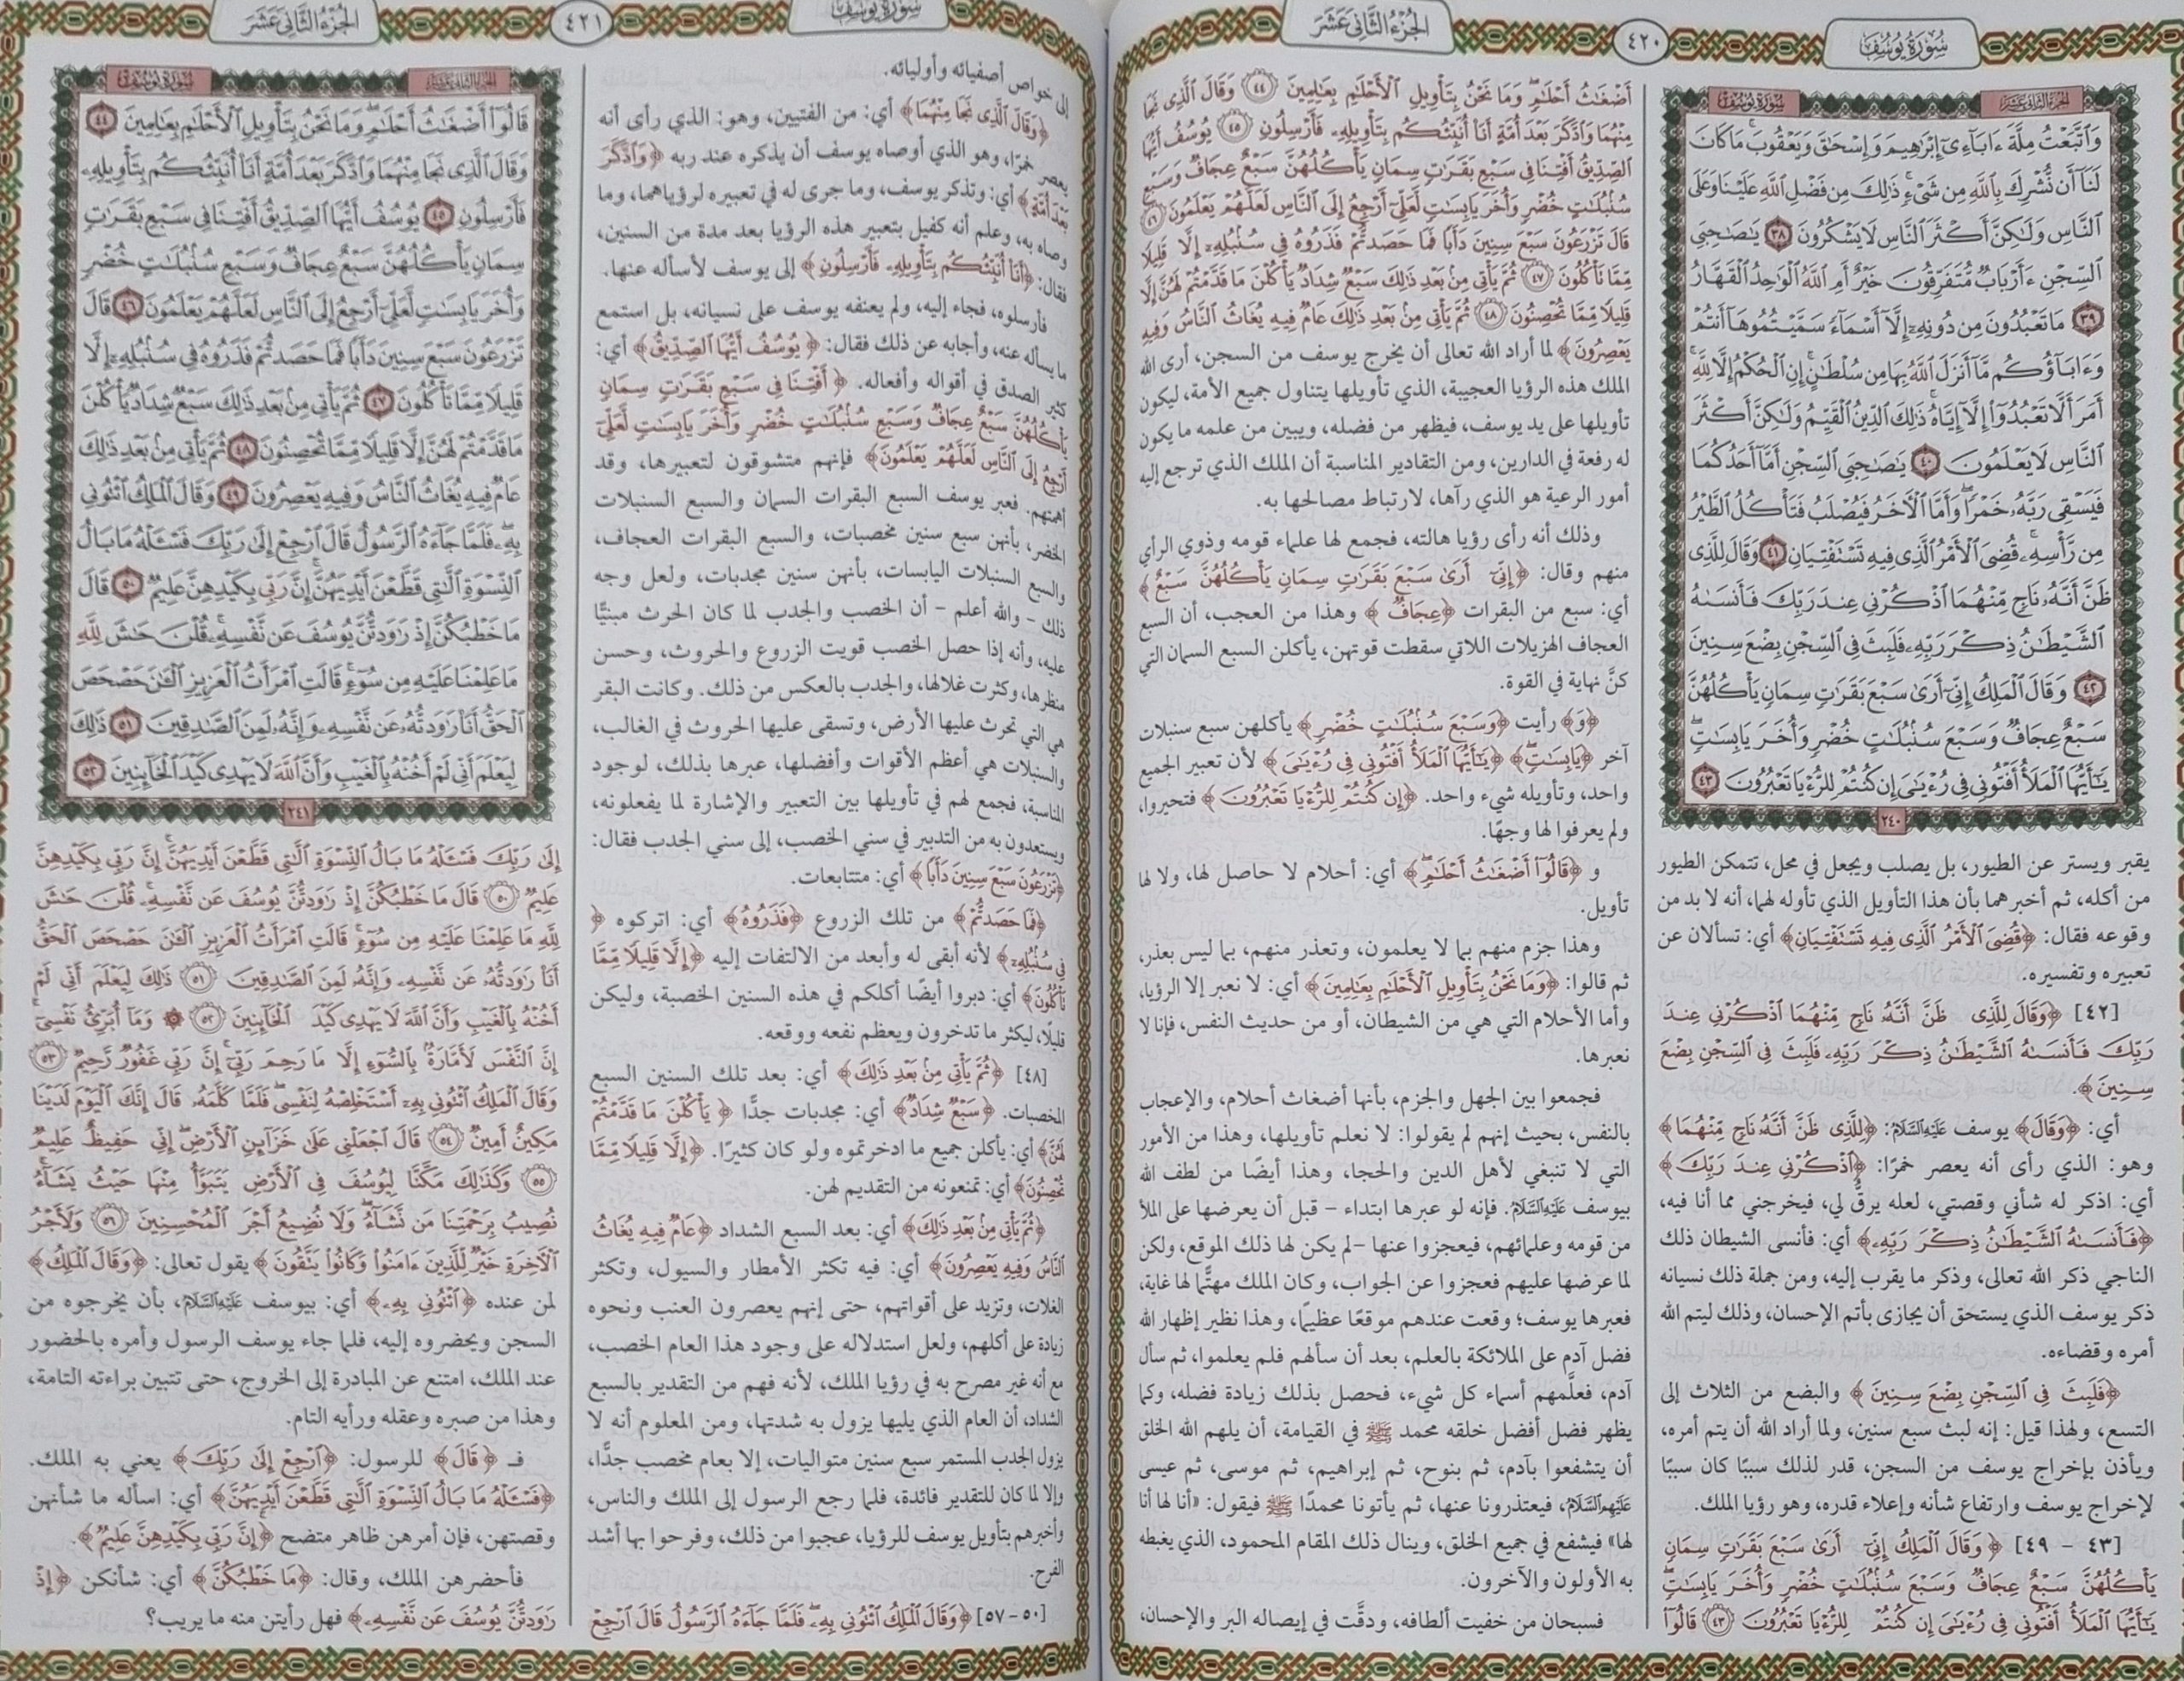 سُورَةُ يُوسُفَ
٤٢٠
الجُزْءُ الثَّانِيَ عَشَرَ
الجزء الثاني عشر سورة يوسف
وَٱتَّبَعۡتُ مِلَّةَ ءَابَآءِيٓ إِبۡرَٰهِيمَ وَإِسۡحَٰقَ وَيَعۡقُوبَۚ مَا كَانَ
لَنَآ أَن نُّشۡرِكَ بِٱللَّهِ مِن شَيۡءٖۚ ذَٰلِكَ مِن فَضۡلِ ٱللَّهِ عَلَيۡنَا وَعَلَى
ٱلنَّاسِ وَلَٰكِنَّ أَكۡثَرَ ٱلنَّاسِ لَا يَشۡكُرُونَ ٣٨ يَٰصَٰحِبَيِ
ٱلسِّجۡنِ ءَأَرۡبَابٞ مُّتَفَرِّقُونَ خَيۡرٌ أَمِ ٱللَّهُ ٱلۡوَٰحِدُ ٱلۡقَهَّارُ
٣٩ مَا تَعۡبُدُونَ مِن دُونِهِۦٓ إِلَّآ أَسۡمَآءٗ سَمَّيۡتُمُوهَآ أَنتُمۡ
وَءَابَآؤُكُم مَّآ أَنزَلَ ٱللَّهُ بِهَا مِن سُلۡطَٰنٍۚ إِنِ ٱلۡحُكۡمُ إِلَّا لِلَّهِ
أَمَرَ أَلَّا تَعۡبُدُوٓاْ إِلَّآ إِيَّاهُۚ ذَٰلِكَ ٱلدِّينُ ٱلۡقَيِّمُ وَلَٰكِنَّ أَكۡثَرَ
ٱلنَّاسِ لَا يَعۡلَمُونَ ٤٠ يَٰصَٰحِبَيِ ٱلسِّجۡنِ أَمَّآ أَحَدُكُمَا
فَيَسۡقِي رَبَّهُۥ خَمۡرٗاۖ وَأَمَّا ٱلۡأٓخَرُ فَيُصۡلَبُ فَتَأۡكُلُ ٱلطَّيۡرُ
مِن رَّأۡسِهِۦۚ قُضِيَ ٱلۡأَمۡرُ ٱلَّذِي فِيهِ تَسۡتَفۡتِيَانِ ٤١ وَقَالَ لِلَّذِي
ظَنَّ أَنَّهُۥ نَاجٖ مِّنۡهُمَا ٱذۡكُرۡنِي عِندَ رَبِّكَ فَأَنسَىٰهُ
ٱلشَّيۡطَٰنُ ذِكۡرَ رَبِّهِۦ فَلَبِثَ فِي ٱلسِّجۡنِ بِضۡعَ سِنِينَ
٤٢ وَقَالَ ٱلۡمَلِكُ إِنِّيٓ أَرَىٰ سَبۡعَ بَقَرَٰتٖ سِمَانٖ يَأۡكُلُهُنَّ
سَبۡعٌ عِجَافٞ وَسَبۡعَ سُنۢبُلَٰتٍ خُضۡرٖ وَأُخَرَ يَابِسَٰتٖۖ
يَٰٓأَيُّهَا ٱلۡمَلَأُ أَفۡتُونِي فِي رُءۡيَٰيَ إِن كُنتُمۡ لِلرُّءۡيَا تَعۡبُرُونَ ٤٣
٢٤٠
يقبر ويستر عن الطيور، بل يصلب ويجعل في محل، تتمكن الطيور
من أكله، ثم أخبرهما بأن هذا التأويل الذي تأوله لهما، أنه لا بد من
وقوعه فقال: ﴿قُضِيَ ٱلۡأَمۡرُ ٱلَّذِي فِيهِ تَسۡتَفۡتِيَانِ﴾ أي: تسألان عن
تعبيره وتفسيره.
[٤٢] ﴿وَقَالَ لِلَّذِي ظَنَّ أَنَّهُۥ نَاجٖ مِّنۡهُمَا ٱذۡكُرۡنِي عِندَ
رَبِّكَ فَأَنسَىٰهُ ٱلشَّيۡطَٰنُ ذِكۡرَ رَبِّهِۦ فَلَبِثَ فِي ٱلسِّجۡنِ بِضۡعَ
سِنِينَ﴾.
أي: ﴿وَقَالَ﴾ يوسف عَلَيْهِ السَّلَامُ: ﴿لِلَّذِي ظَنَّ أَنَّهُۥ نَاجٖ مِّنۡهُمَا﴾
وهو: الذي رأى أنه يعصر خمرًا: ﴿ٱذۡكُرۡنِي عِندَ رَبِّكَ﴾
أي: اذكر له شأني وقصتي، لعله يرقُّ لي، فيخرجني مما أنا فيه،
﴿فَأَنسَىٰهُ ٱلشَّيۡطَٰنُ ذِكۡرَ رَبِّهِۦ﴾ أي: فأنسى الشيطان ذلك
الناجي ذكر الله تعالى، وذكر ما يقرب إليه، ومن جملة ذلك نسيانه
ذكر يوسف الذي يستحق أن يجازى بأتم الإحسان، وذلك ليتم الله
أمره وقضاءه.
﴿فَلَبِثَ فِي ٱلسِّجۡنِ بِضۡعَ سِنِينَ﴾ والبضع من الثلاث إلى
التسع، ولهذا قيل: إنه لبث سبع سنين، ولما أراد الله أن يتم أمره،
ويأذن بإخراج يوسف من السجن، قدر لذلك سببًا كان سببًا
لإخراج يوسف وارتفاع شأنه وإعلاء قدره، وهو رؤيا الملك.
[٤٣ - ٤٩] ﴿وَقَالَ ٱلۡمَلِكُ إِنِّيٓ أَرَىٰ سَبۡعَ بَقَرَٰتٖ سِمَانٖ
يَأۡكُلُهُنَّ سَبۡعٌ عِجَافٞ وَسَبۡعَ سُنۢبُلَٰتٍ خُضۡرٖ وَأُخَرَ يَابِسَٰتٖۖ
يَٰٓأَيُّهَا ٱلۡمَلَأُ أَفۡتُونِي فِي رُءۡيَٰيَ إِن كُنتُمۡ لِلرُّءۡيَا تَعۡبُرُونَ ٤٣ قَالُوٓاْ
أَضۡغَٰثُ أَحۡلَٰمٖۖ وَمَا نَحۡنُ بِتَأۡوِيلِ ٱلۡأَحۡلَٰمِ بِعَٰلِمِينَ ٤٤ وَقَالَ ٱلَّذِي نَجَا
مِنۡهُمَا وَٱدَّكَرَ بَعۡدَ أُمَّةٍ أَنَا۠ أُنَبِّئُكُم بِتَأۡوِيلِهِۦ فَأَرۡسِلُونِ ٤٥ يُوسُفُ أَيُّهَا
ٱلصِّدِّيقُ أَفۡتِنَا فِي سَبۡعِ بَقَرَٰتٖ سِمَانٖ يَأۡكُلُهُنَّ سَبۡعٌ عِجَافٞ وَسَبۡعِ
سُنۢبُلَٰتٍ خُضۡرٖ وَأُخَرَ يَابِسَٰتٖ لَّعَلِّيٓ أَرۡجِعُ إِلَى ٱلنَّاسِ لَعَلَّهُمۡ يَعۡلَمُونَ ٤٦
قَالَ تَزۡرَعُونَ سَبۡعَ سِنِينَ دَأَبٗا فَمَا حَصَدتُّمۡ فَذَرُوهُ فِي سُنۢبُلِهِۦٓ إِلَّا قَلِيلٗا
مِّمَّا تَأۡكُلُونَ ٤٧ ثُمَّ يَأۡتِي مِنۢ بَعۡدِ ذَٰلِكَ سَبۡعٞ شِدَادٞ يَأۡكُلۡنَ مَا قَدَّمۡتُمۡ لَهُنَّ إِلَّا
قَلِيلٗا مِّمَّا تُحۡصِنُونَ ٤٨ ثُمَّ يَأۡتِي مِنۢ بَعۡدِ ذَٰلِكَ عَامٞ فِيهِ يُغَاثُ ٱلنَّاسُ وَفِيهِ
يَعۡصِرُونَ﴾ لما أراد الله تعالى أن يخرج يوسف من السجن، أرى الله
الملك هذه الرؤيا العجيبة، الذي تأويلها يتناول جميع الأمة، ليكون
تأويلها على يد يوسف، فيظهر من فضله، ويبين من علمه ما يكون
له رفعة في الدارين، ومن التقادير المناسبة أن الملك الذي ترجع إليه
أمور الرعية هو الذي رآها، لارتباط مصالحها به.
وذلك أنه رأى رؤيا هالته، فجمع لها علماء قومه وذوي الرأي
منهم وقال: ﴿إِنِّيٓ أَرَىٰ سَبۡعَ بَقَرَٰتٖ سِمَانٖ يَأۡكُلُهُنَّ سَبۡعٌ﴾
أي: سبع من البقرات ﴿عِجَافٞ﴾ وهذا من العجب، أن السبع
العجاف الهزيلات اللاتي سقطت قوتهن، يأكلن السبع السمان التي
كنَّ نهاية في القوة.
﴿وَ﴾ رأيت ﴿وَسَبۡعَ سُنۢبُلَٰتٍ خُضۡرٖ﴾ يأكلهن سبع سنبلات
أخر ﴿يَابِسَٰتٖۖ﴾ ﴿يَٰٓأَيُّهَا ٱلۡمَلَأُ أَفۡتُونِي فِي رُءۡيَٰيَ﴾ لأن تعبير الجميع
واحد، وتأويله شيء واحد. ﴿إِن كُنتُمۡ لِلرُّءۡيَا تَعۡبُرُونَ﴾ فتحيروا،
ولم يعرفوا لها وجهًا.
و ﴿قَالُوٓاْ أَضۡغَٰثُ أَحۡلَٰمٖۖ﴾ أي: أحلام لا حاصل لها، ولا لها
تأويل.
وهذا جزم منهم بما لا يعلمون، وتعذر منهم، بما ليس بعذر،
ثم قالوا: ﴿وَمَا نَحۡنُ بِتَأۡوِيلِ ٱلۡأَحۡلَٰمِ بِعَٰلِمِينَ﴾ أي: لا نعبر إلا الرؤيا،
وأما الأحلام التي هي من الشيطان، أو من حديث النفس، فإنا لا
نعبرها.
فجمعوا بين الجهل والجزم، بأنها أضغاث أحلام، والإعجاب
بالنفس، بحيث إنهم لم يقولوا: لا نعلم تأويلها، وهذا من الأمور
التي لا تنبغي لأهل الدين والحجا، وهذا أيضًا من لطف الله
بيوسف عَلَيْهِ السَّلَامُ. فإنه لو عبرها ابتداء – قبل أن يعرضها على الملأ
من قومه وعلمائهم، فيعجزوا عنها –لم يكن لها ذلك الموقع، ولكن
لما عرضها عليهم فعجزوا عن الجواب، وكان الملك مهتمًّا لها غاية،
فعبرها يوسف؛ وقعت عندهم موقعًا عظيمًا، وهذا نظير إظهار الله
فضل آدم على الملائكة بالعلم، بعد أن سألهم فلم يعلموا، ثم سأل
آدم، فعلَّمهم أسماء كل شيء، فحصل بذلك زيادة فضله، وكما
يظهر فضل أفضل خلقه محمد ﷺ في القيامة، أن يلهم الله الخلق
أن يتشفعوا بآدم، ثم بنوح، ثم إبراهيم، ثم موسى، ثم عيسى
عَلَيْهِمُ السَّلَامُ، فيعتذرونا عنها، ثم يأتونا محمدًا ﷺ فيقول: «أنا لها أنا
لها» فيشفع في جميع الخلق، وينال ذلك المقام المحمود، الذي يغبطه
به الأولون والآخرون.
فسبحان من خفيت ألطافه، ودقَّت في إيصاله البر والإحسان،
سُورَةُ يُوسُفَ
٤٢١
الجُزْءُ الثَّانِيَ عَشَرَ
إلى خواص أصفيائه وأوليائه.
﴿وَقَالَ ٱلَّذِي نَجَا مِنۡهُمَا﴾ أي: من الفتيين، وهو: الذي رأى أنه
يعصر خمرًا، وهو الذي أوصاه يوسف أن يذكره عند ربه ﴿وَٱدَّكَرَ
بَعۡدَ أُمَّةٍ﴾ أي: وتذكر يوسف، وما جرى له في تعبيره لرؤياهما، وما
وصاه به، وعلم أنه كفيل بتعبير هذه الرؤيا بعد مدة من السنين،
فقال: ﴿أَنَا۠ أُنَبِّئُكُم بِتَأۡوِيلِهِۦ فَأَرۡسِلُونِ﴾ إلى يوسف لأسأله عنها.
فأرسلوه، فجاء إليه، ولم يعنفه يوسف على نسيانه، بل استمع
ما يسأله عنه، وأجابه عن ذلك فقال: ﴿يُوسُفُ أَيُّهَا ٱلصِّدِّيقُ﴾ أي:
كثير الصدق في أقواله وأفعاله. ﴿أَفۡتِنَا فِي سَبۡعِ بَقَرَٰتٖ سِمَانٖ
يَأۡكُلُهُنَّ سَبۡعٌ عِجَافٞ وَسَبۡعِ سُنۢبُلَٰتٍ خُضۡرٖ وَأُخَرَ يَابِسَٰتٖ لَّعَلِّيٓ
أَرۡجِعُ إِلَى ٱلنَّاسِ لَعَلَّهُمۡ يَعۡلَمُونَ﴾ فإنهم متشوقون لتعبيرها، وقد
أهمتهم. فعبر يوسف السبع البقرات السمان والسبع السنبلات
الخضر، بأنهن سبع سنين مخصبات، والسبع البقرات العجاف،
والسبع السنبلات اليابسات، بأنهن سنين مجدبات، ولعل وجه
ذلك – والله أعلم – أن الخصب والجدب لما كان الحرث مبنيًّا
عليه، وأنه إذا حصل الخصب قويت الزروع والحروث، وحسن
منظرها، وكثرت غلالها، والجدب بالعكس من ذلك. وكانت البقر
هي التي تحرث عليها الأرض، وتسقى عليها الحروث في الغالب،
والسنبلات هي أعظم الأقوات وأفضلها، عبرها بذلك، لوجود
المناسبة، فجمع لهم في تأويلها بين التعبير والإشارة لما يفعلونه،
ويستعدون به من التدبير في سني الخصب، إلى سني الجدب فقال:
﴿تَزۡرَعُونَ سَبۡعَ سِنِينَ دَأَبٗا﴾ أي: متتابعات.
﴿فَمَا حَصَدتُّمۡ﴾ من تلك الزروع ﴿فَذَرُوهُ﴾ أي: اتركوه ﴿
فِي سُنۢبُلِهِۦٓ﴾ لأنه أبقى له وأبعد من الالتفات إليه ﴿إِلَّا قَلِيلٗا مِّمَّا
تَأۡكُلُونَ﴾ أي: دبروا أيضًا أكلكم في هذه السنين الخصبة، وليكن
قليلًا، ليكثر ما تدخرون ويعظم نفعه ووقعه.
[٤٨] ﴿ثُمَّ يَأۡتِي مِنۢ بَعۡدِ ذَٰلِكَ﴾ أي: بعد تلك السنين السبع
المخصبات. ﴿سَبۡعٞ شِدَادٞ﴾ أي: مجدبات جدًّا ﴿يَأۡكُلۡنَ مَا قَدَّمۡتُمۡ
لَهُنَّ﴾ أي: يأكلن جميع ما ادخرتموه ولو كان كثيرًا. ﴿إِلَّا قَلِيلٗا مِّمَّا
تُحۡصِنُونَ﴾ أي: تمنعونه من التقديم لهن.
﴿ثُمَّ يَأۡتِي مِنۢ بَعۡدِ ذَٰلِكَ﴾ أي: بعد السبع الشداد ﴿عَامٞ فِيهِ يُغَاثُ
ٱلنَّاسُ وَفِيهِ يَعۡصِرُونَ﴾ أي: فيه تكثر الأمطار والسيول، وتكثر
الغلات، وتزيد على أقواتهم، حتى إنهم يعصرون العنب ونحوه
زيادة على أكلهم، ولعل استدلاله على وجود هذا العام الخصب،
مع أنه غير مصرح به في رؤيا الملك، لأنه فهم من التقدير بالسبع
الشداد، أن العام الذي يليها يزول به شدتها، ومن المعلوم أنه لا
يزول الجدب المستمر سبع سنين متواليات، إلا بعام مخصب جدًّا،
وإلا لما كان للتقدير فائدة، فلما رجع الرسول إلى الملك والناس،
وأخبرهم بتأويل يوسف للرؤيا، عجبوا من ذلك، وفرحوا بها أشد
الفرح.
[٥٠-٥٧] ﴿وَقَالَ ٱلۡمَلِكُ ٱئۡتُونِي بِهِۦۖ فَلَمَّا جَآءَهُ ٱلرَّسُولُ قَالَ ٱرۡجِعۡ
الجزء الثاني عشر سورة يوسف
قَالُوٓاْ أَضۡغَٰثُ أَحۡلَٰمٖۖ وَمَا نَحۡنُ بِتَأۡوِيلِ ٱلۡأَحۡلَٰمِ بِعَٰلِمِينَ ٤٤
وَقَالَ ٱلَّذِي نَجَا مِنۡهُمَا وَٱدَّكَرَ بَعۡدَ أُمَّةٍ أَنَا۠ أُنَبِّئُكُم بِتَأۡوِيلِهِۦ
فَأَرۡسِلُونِ ٤٥ يُوسُفُ أَيُّهَا ٱلصِّدِّيقُ أَفۡتِنَا فِي سَبۡعِ بَقَرَٰتٖ
سِمَانٖ يَأۡكُلُهُنَّ سَبۡعٌ عِجَافٞ وَسَبۡعِ سُنۢبُلَٰتٍ خُضۡرٖ
وَأُخَرَ يَابِسَٰتٖ لَّعَلِّيٓ أَرۡجِعُ إِلَى ٱلنَّاسِ لَعَلَّهُمۡ يَعۡلَمُونَ ٤٦ قَالَ
تَزۡرَعُونَ سَبۡعَ سِنِينَ دَأَبٗا فَمَا حَصَدتُّمۡ فَذَرُوهُ فِي سُنۢبُلِهِۦٓ إِلَّا
قَلِيلٗا مِّمَّا تَأۡكُلُونَ ٤٧ ثُمَّ يَأۡتِي مِنۢ بَعۡدِ ذَٰلِكَ سَبۡعٞ شِدَادٞ يَأۡكُلۡنَ
مَا قَدَّمۡتُمۡ لَهُنَّ إِلَّا قَلِيلٗا مِّمَّا تُحۡصِنُونَ ٤٨ ثُمَّ يَأۡتِي مِنۢ بَعۡدِ ذَٰلِكَ
عَامٞ فِيهِ يُغَاثُ ٱلنَّاسُ وَفِيهِ يَعۡصِرُونَ ٤٩ وَقَالَ ٱلۡمَلِكُ ٱئۡتُونِي
بِهِۦۖ فَلَمَّا جَآءَهُ ٱلرَّسُولُ قَالَ ٱرۡجِعۡ إِلَىٰ رَبِّكَ فَسۡـَٔلۡهُ مَا بَالُ
ٱلنِّسۡوَةِ ٱلَّٰتِي قَطَّعۡنَ أَيۡدِيَهُنَّۚ إِنَّ رَبِّي بِكَيۡدِهِنَّ عَلِيمٞ ٥٠ قَالَ
مَا خَطۡبُكُنَّ إِذۡ رَٰوَدتُّنَّ يُوسُفَ عَن نَّفۡسِهِۦۚ قُلۡنَ حَٰشَ لِلَّهِ
مَا عَلِمۡنَا عَلَيۡهِ مِن سُوٓءٖۚ قَالَتِ ٱمۡرَأَتُ ٱلۡعَزِيزِ ٱلۡـَٰٔنَ حَصۡحَصَ
ٱلۡحَقُّ أَنَا۠ رَٰوَدتُّهُۥ عَن نَّفۡسِهِۦ وَإِنَّهُۥ لَمِنَ ٱلصَّٰدِقِينَ ٥١ ذَٰلِكَ
لِيَعۡلَمَ أَنِّي لَمۡ أَخُنۡهُ بِٱلۡغَيۡبِ وَأَنَّ ٱللَّهَ لَا يَهۡدِي كَيۡدَ ٱلۡخَآئِنِينَ ٥٢
٢٤١
إِلَىٰ رَبِّكَ فَسۡـَٔلۡهُ مَا بَالُ ٱلنِّسۡوَةِ ٱلَّٰتِي قَطَّعۡنَ أَيۡدِيَهُنَّۚ إِنَّ رَبِّي بِكَيۡدِهِنَّ
عَلِيمٞ ٥٠ قَالَ مَا خَطۡبُكُنَّ إِذۡ رَٰوَدتُّنَّ يُوسُفَ عَن نَّفۡسِهِۦۚ قُلۡنَ حَٰشَ
لِلَّهِ مَا عَلِمۡنَا عَلَيۡهِ مِن سُوٓءٖۚ قَالَتِ ٱمۡرَأَتُ ٱلۡعَزِيزِ ٱلۡـَٰٔنَ حَصۡحَصَ ٱلۡحَقُّ
أَنَا۠ رَٰوَدتُّهُۥ عَن نَّفۡسِهِۦ وَإِنَّهُۥ لَمِنَ ٱلصَّٰدِقِينَ ٥١ ذَٰلِكَ لِيَعۡلَمَ أَنِّي لَمۡ
أَخُنۡهُ بِٱلۡغَيۡبِ وَأَنَّ ٱللَّهَ لَا يَهۡدِي كَيۡدَ ٱلۡخَآئِنِينَ ٥٢ ۞ وَمَآ أُبَرِّئُ نَفۡسِيٓۚ
إِنَّ ٱلنَّفۡسَ لَأَمَّارَةُۢ بِٱلسُّوٓءِ إِلَّا مَا رَحِمَ رَبِّيٓۚ إِنَّ رَبِّي غَفُورٞ رَّحِيمٞ ٥٣
وَقَالَ ٱلۡمَلِكُ ٱئۡتُونِي بِهِۦٓ أَسۡتَخۡلِصۡهُ لِنَفۡسِيۖ فَلَمَّا كَلَّمَهُۥ قَالَ إِنَّكَ ٱلۡيَوۡمَ لَدَيۡنَا
مَكِينٌ أَمِينٞ ٥٤ قَالَ ٱجۡعَلۡنِي عَلَىٰ خَزَآئِنِ ٱلۡأَرۡضِۖ إِنِّي حَفِيظٌ عَلِيمٞ
٥٥ وَكَذَٰلِكَ مَكَّنَّا لِيُوسُفَ فِي ٱلۡأَرۡضِ يَتَبَوَّأُ مِنۡهَا حَيۡثُ يَشَآءُۚ
نُصِيبُ بِرَحۡمَتِنَا مَن نَّشَآءُۖ وَلَا نُضِيعُ أَجۡرَ ٱلۡمُحۡسِنِينَ ٥٦ وَلَأَجۡرُ
ٱلۡأٓخِرَةِ خَيۡرٞ لِّلَّذِينَ ءَامَنُواْ وَكَانُواْ يَتَّقُونَ﴾ يقول تعالى: ﴿وَقَالَ ٱلۡمَلِكُ﴾
لمن عنده ﴿ٱئۡتُونِي بِهِۦ﴾ أي: بيوسف عَلَيْهِ السَّلَامُ، بأن يخرجوه من
السجن ويحضروه إليه، فلما جاء يوسف الرسول وأمره بالحضور
عند الملك، امتنع عن المبادرة إلى الخروج، حتى تتبين براءته التامة،
وهذا من صبره وعقله ورأيه التام.
فـ ﴿قَالَ﴾ للرسول: ﴿ٱرۡجِعۡ إِلَىٰ رَبِّكَ﴾ يعني به الملك.
﴿فَسۡـَٔلۡهُ مَا بَالُ ٱلنِّسۡوَةِ ٱلَّٰتِي قَطَّعۡنَ أَيۡدِيَهُنَّ﴾ أي: اسأله ما شأنهن
وقصتهن، فإن أمرهن ظاهر متضح ﴿إِنَّ رَبِّي بِكَيۡدِهِنَّ عَلِيمٞ﴾.
فأحضرهن الملك، وقال: ﴿مَا خَطۡبُكُنَّ﴾ أي: شأنكن ﴿إِذۡ
رَٰوَدتُّنَّ يُوسُفَ عَن نَّفۡسِهِۦ﴾ فهل رأيتن منه ما يريب؟